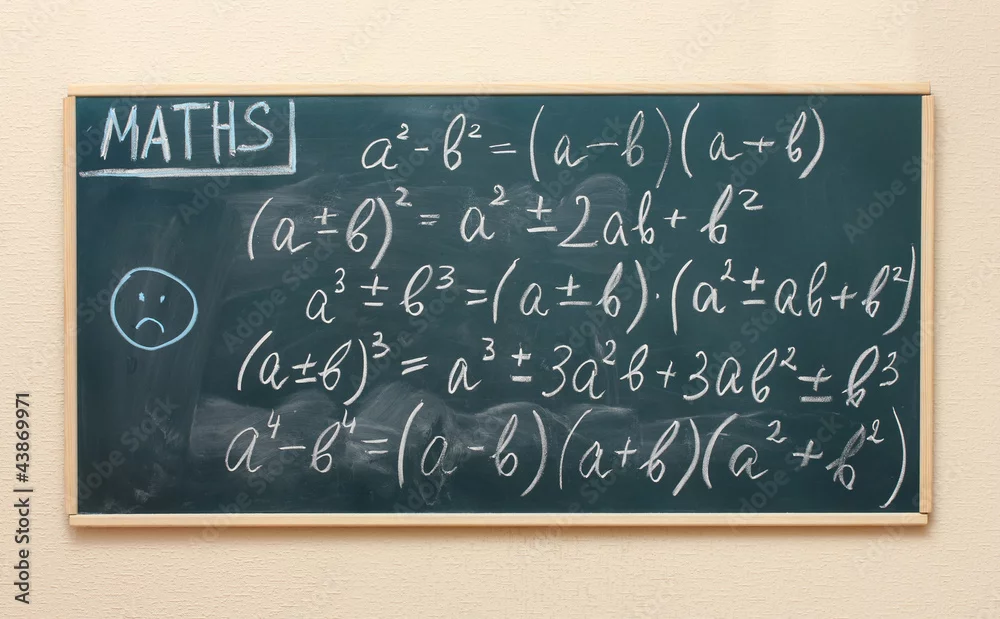 MATHS
a² - b² = (a - b)(a + b)
(a ± b)² = a² ± 2ab + b²
a³ ± b³ = (a ± b) · (a² ± ab + b²)
(a ± b)³ = a³ ± 3a²b + 3ab² ± b³
a⁴ - b⁴ = (a - b)(a + b)(a² + b²)
Adobe Stock | #43869971